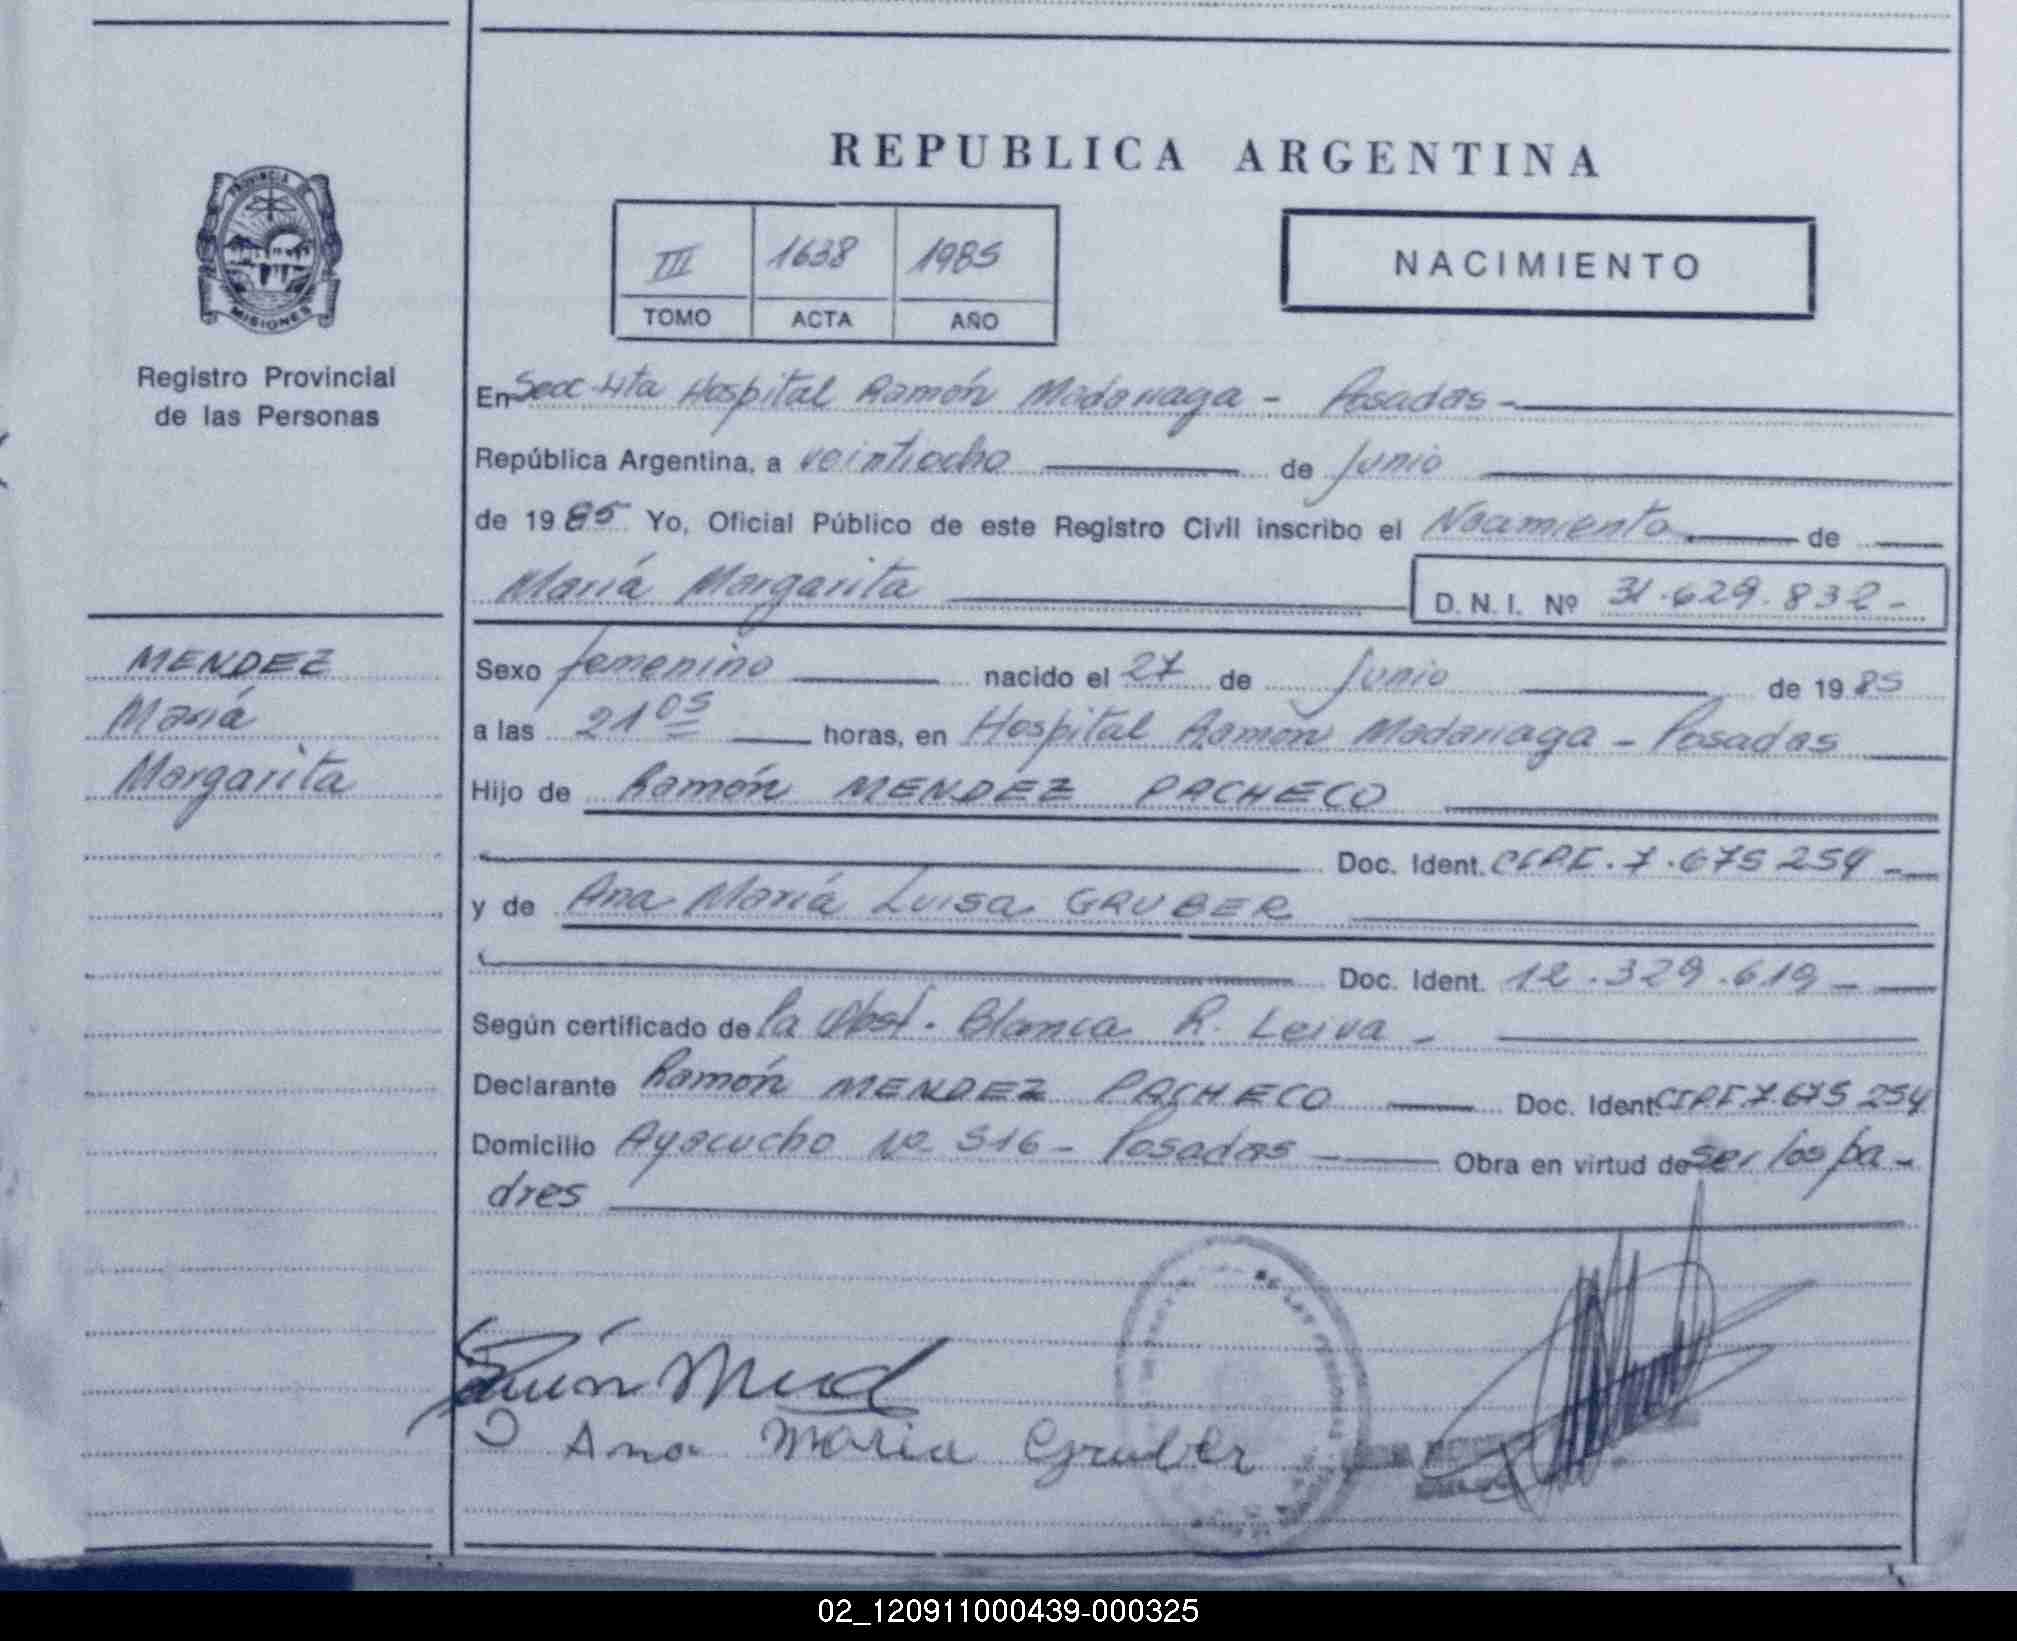 REPUBLICA ARGENTINA
PROVINCIA DE
MISIONES
Registro Provincial
de las Personas
III 1638 1985
TOMO ACTA AÑO
NACIMIENTO
En Secc 4ta Hospital Ramón Madariaga - Posadas -
República Argentina, a veintiocho de Junio
de 1985 Yo, Oficial Público de este Registro Civil inscribo el Nacimiento de
María Margarita D. N. I. Nº 31.629.832-
MENDEZ
María
Margarita
Sexo femenino nacido el 27 de Junio de 1985
a las 21 05 horas, en Hospital Ramón Madariaga - Posadas
Hijo de Ramón MENDEZ PACHECO
Doc. Ident. 7.675 254 -
y de Ana María Luisa GRUBER
Doc. Ident. 12.329.619 -
Según certificado de la Obst. Blanca R. Leiva -
Declarante Ramón MENDEZ PACHECO Doc. Ident 7.675 254
Domicilio Ayacucho Nº 516 - Posadas Obra en virtud de ser los pa-
dres
Ana Maria Gruber
02_120911000439-000325